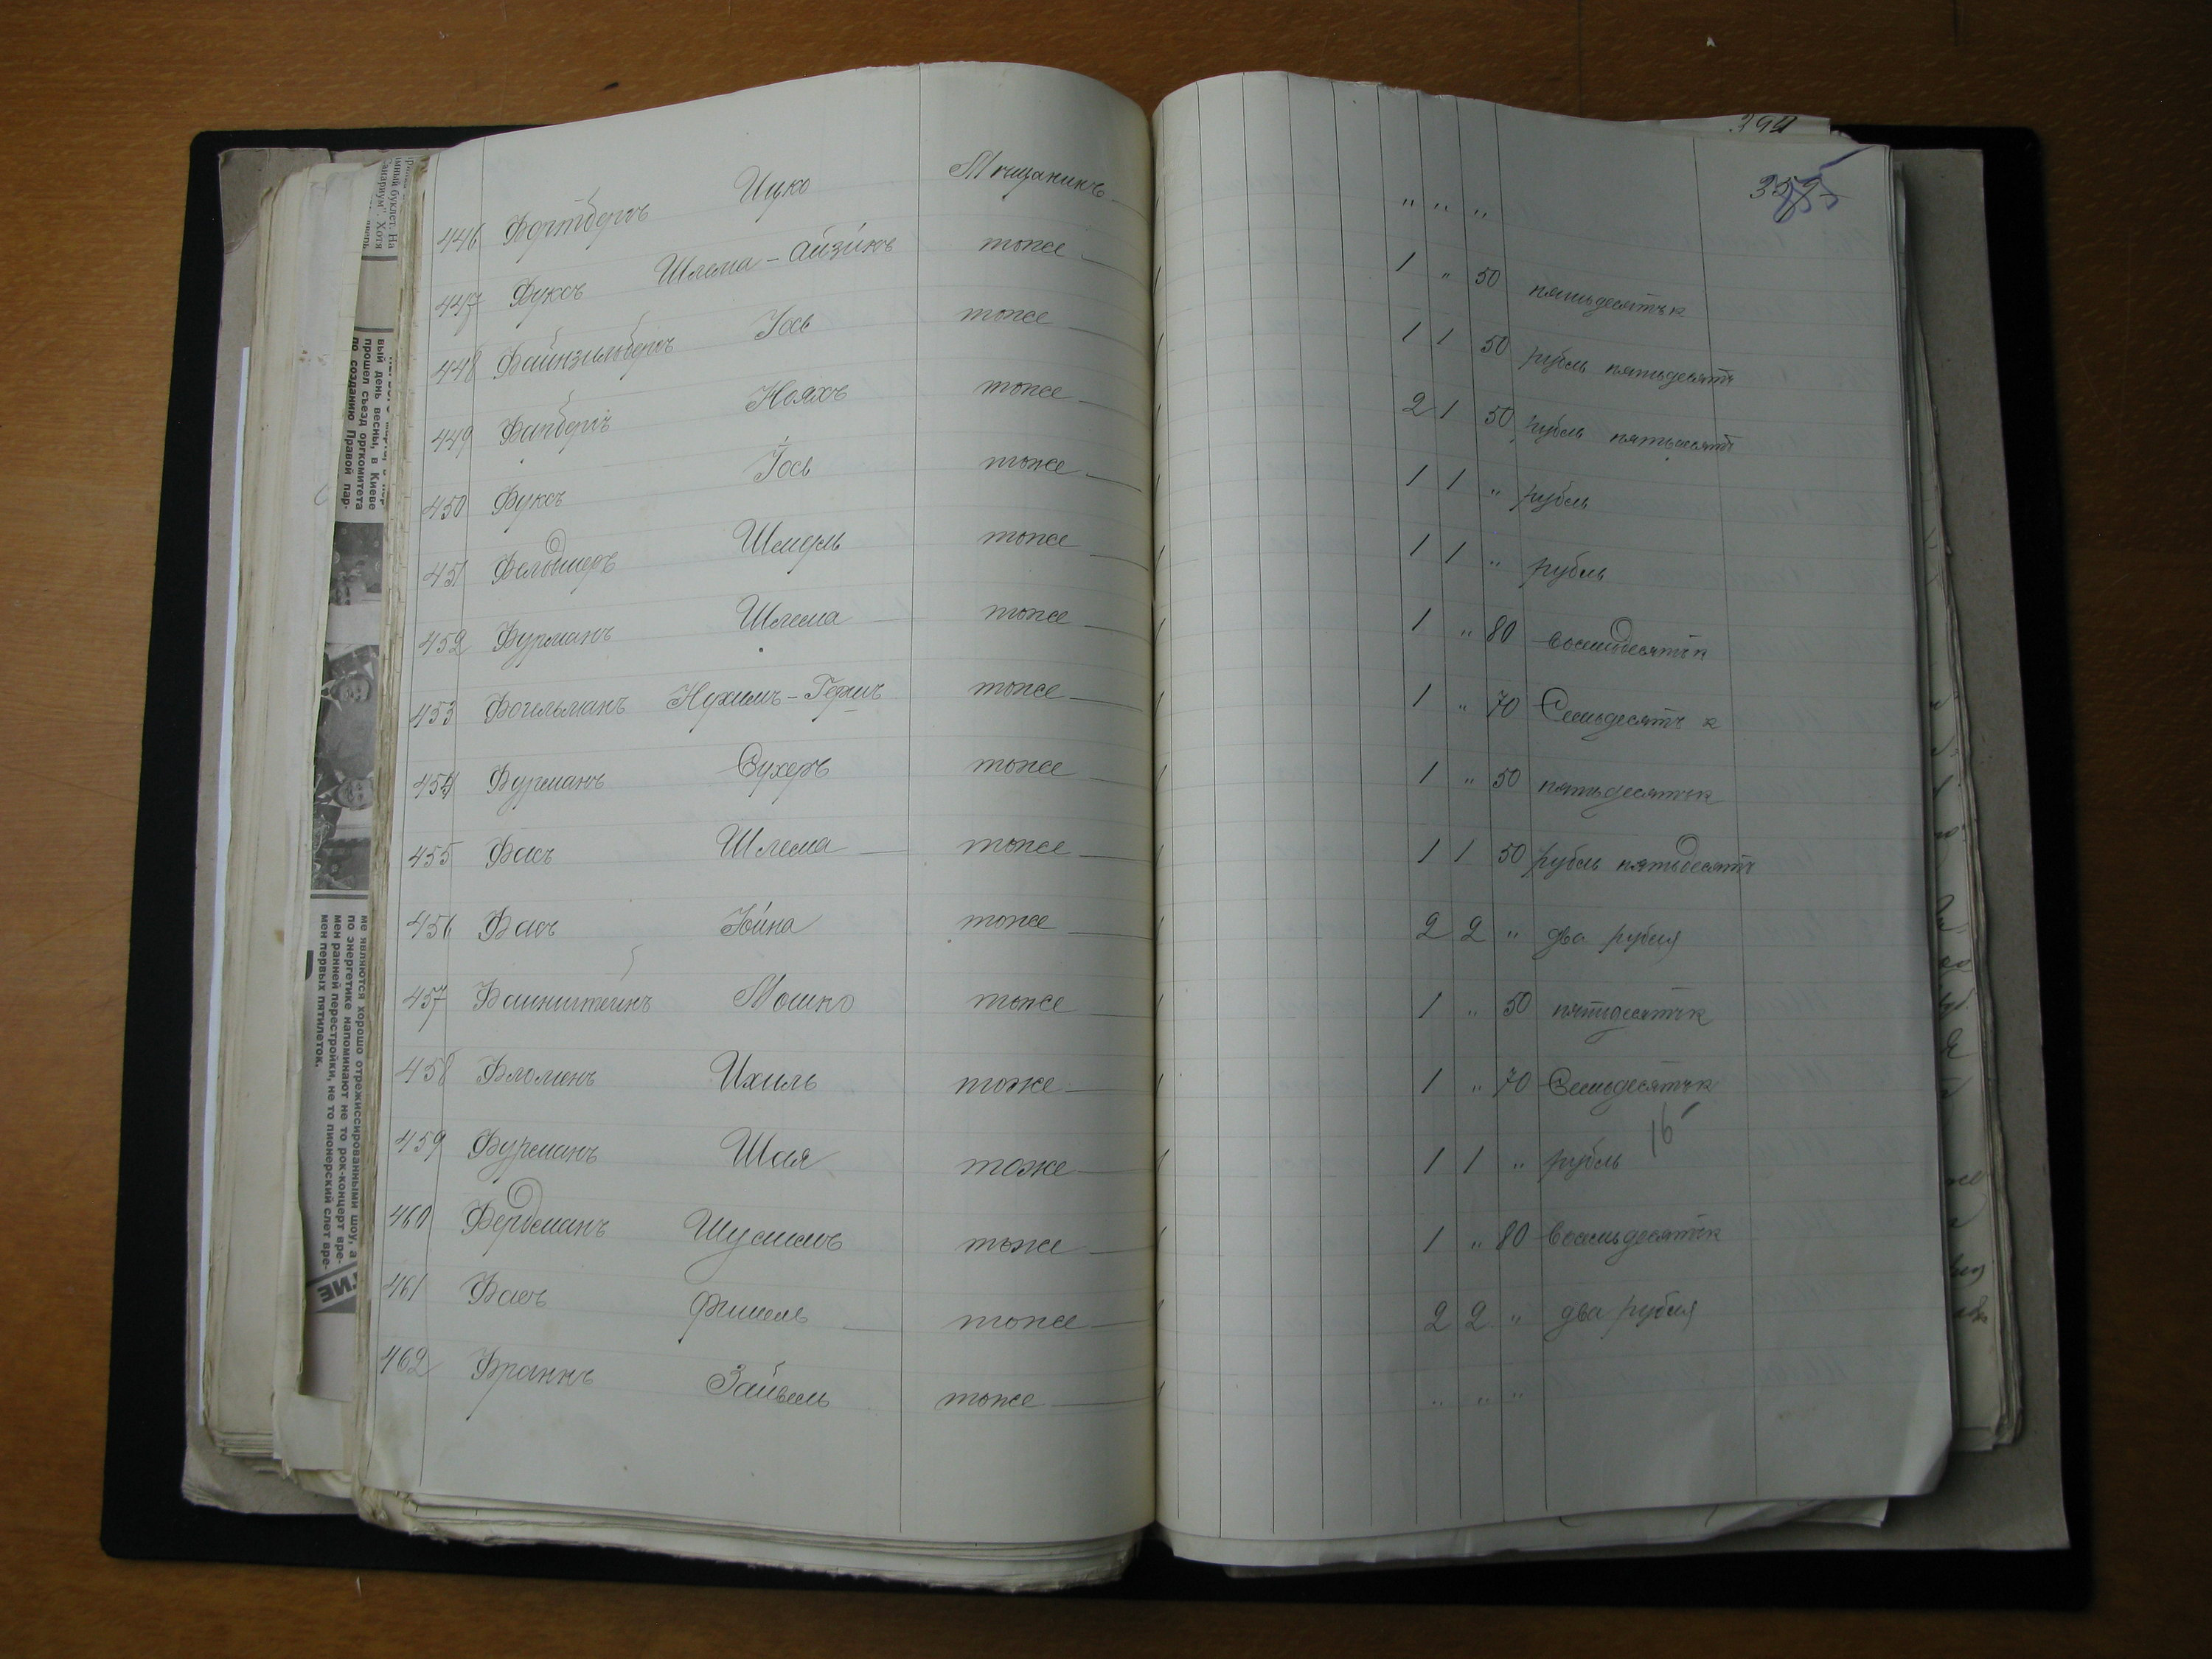 394
359
446 Фортбергъ Ицко Мещанинъ " " "
447 Фуксъ Шлема-Айзикъ тоже 1 " 50 пятьдесятъ к
448 Файнзильбергъ Іось тоже 1 1 50 рубль пятьдесятъ
449 Фарбергъ Нояхъ тоже 2 1 50 рубль пятьдесятъ
450 Фуксъ Іось тоже 1 1 " рубль
451 Фельдшеръ Шмерль тоже 1 1 " рубль
452 Фурманъ Шлема тоже 1 " 80 восемьдесятъ к
453 Фогильманъ Нохимъ-Гершъ тоже 1 " 70 Семьдесятъ к
454 Фурманъ Сухеръ тоже 1 " 50 пятьдесятъ к
455 Фасъ Шлема тоже 1 1 50 рубль пятьдесятъ
456 Фасъ Іойна тоже 2 2 " два рубля
457 Файнштейнъ Мошко тоже 1 " 50 пятьдесятъ к
458 Фломенъ Ихиль тоже 1 " 70 Семьдесятъ к
16
459 Фурманъ Шая тоже 1 1 " рубль
460 Фердманъ Шулимъ тоже 1 " 80 восемьдесятъ к
461 Фасъ Фишель тоже 2 2 " два рубля
462 Франкъ Зайвель тоже " " "
вый день весны, в Киеве
прошел съезд оргкомитета
по созданию Правой пар-
ме являются хорошо отрежиссированными шоу, а
по энергетике напоминают не то рок-концерт вре-
мен ранней перестройки, не то пионерский слет вре-
мен первых пятилеток.